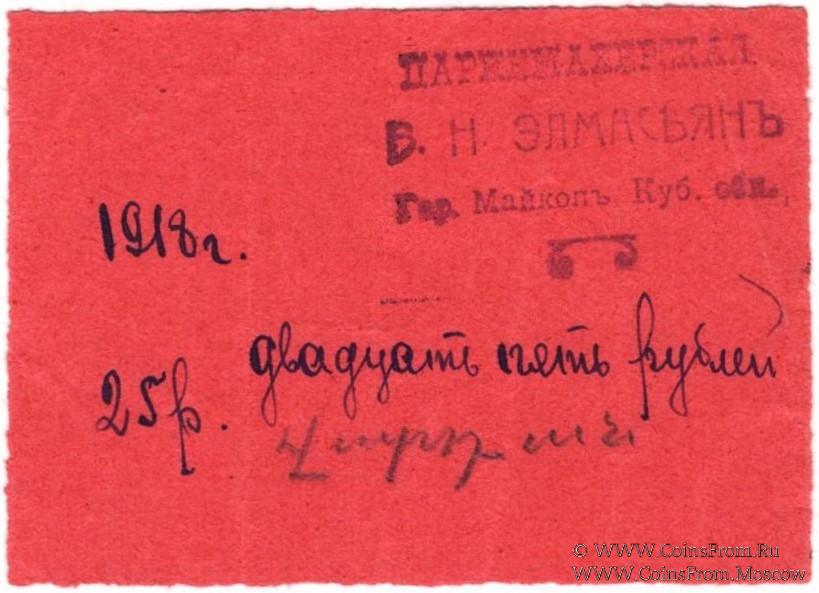 ПАРИКМАХЕРСКАЯ
В. Н. ЭЛМАСЬЯНЪ
Гор. Майкопъ Куб. обл.,
1918 г.
25 р. двадцать пять рублей
© WWW.CoinsFrom.Ru
WWW.CoinsFrom.Moscow